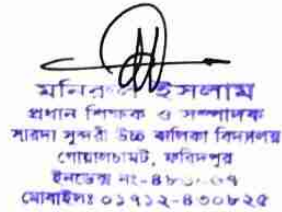 মনিরুল ইসলাম
প্রধান শিক্ষক ও সম্পাদক
সারদা সুন্দরী উচ্চ বালিকা বিদ্যালয়
গোয়ালচামট, ফরিদপুর
ইনডেক্স নং-
মোবাইলঃ ০১৭১২-৪৩০৮২৫